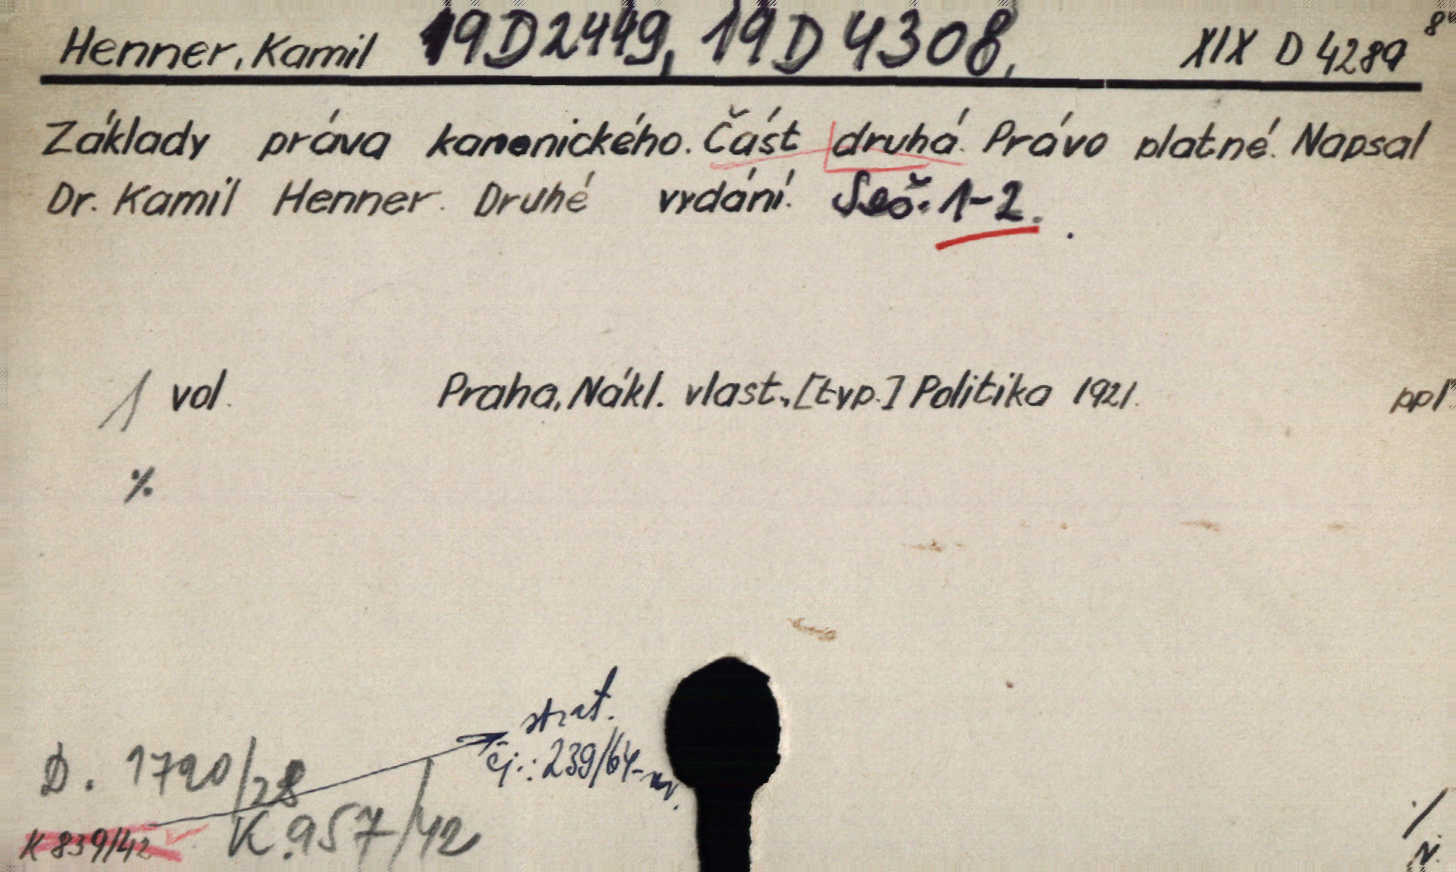 Henner, Kamil 19D2449, 19D4308, XIX D 4289 8°
Základy práva kanonického. Část druhá. Právo platné. Napsal
Dr. Kamil Henner. Druhé vydání. Seš. 1-2.
1 vol. Praha, Nákl. vlast., [typ.] Politika 1921. ppl.
%
strat.
čj.: 239/64-
D. 1790/28
K 839/42 K.957/42